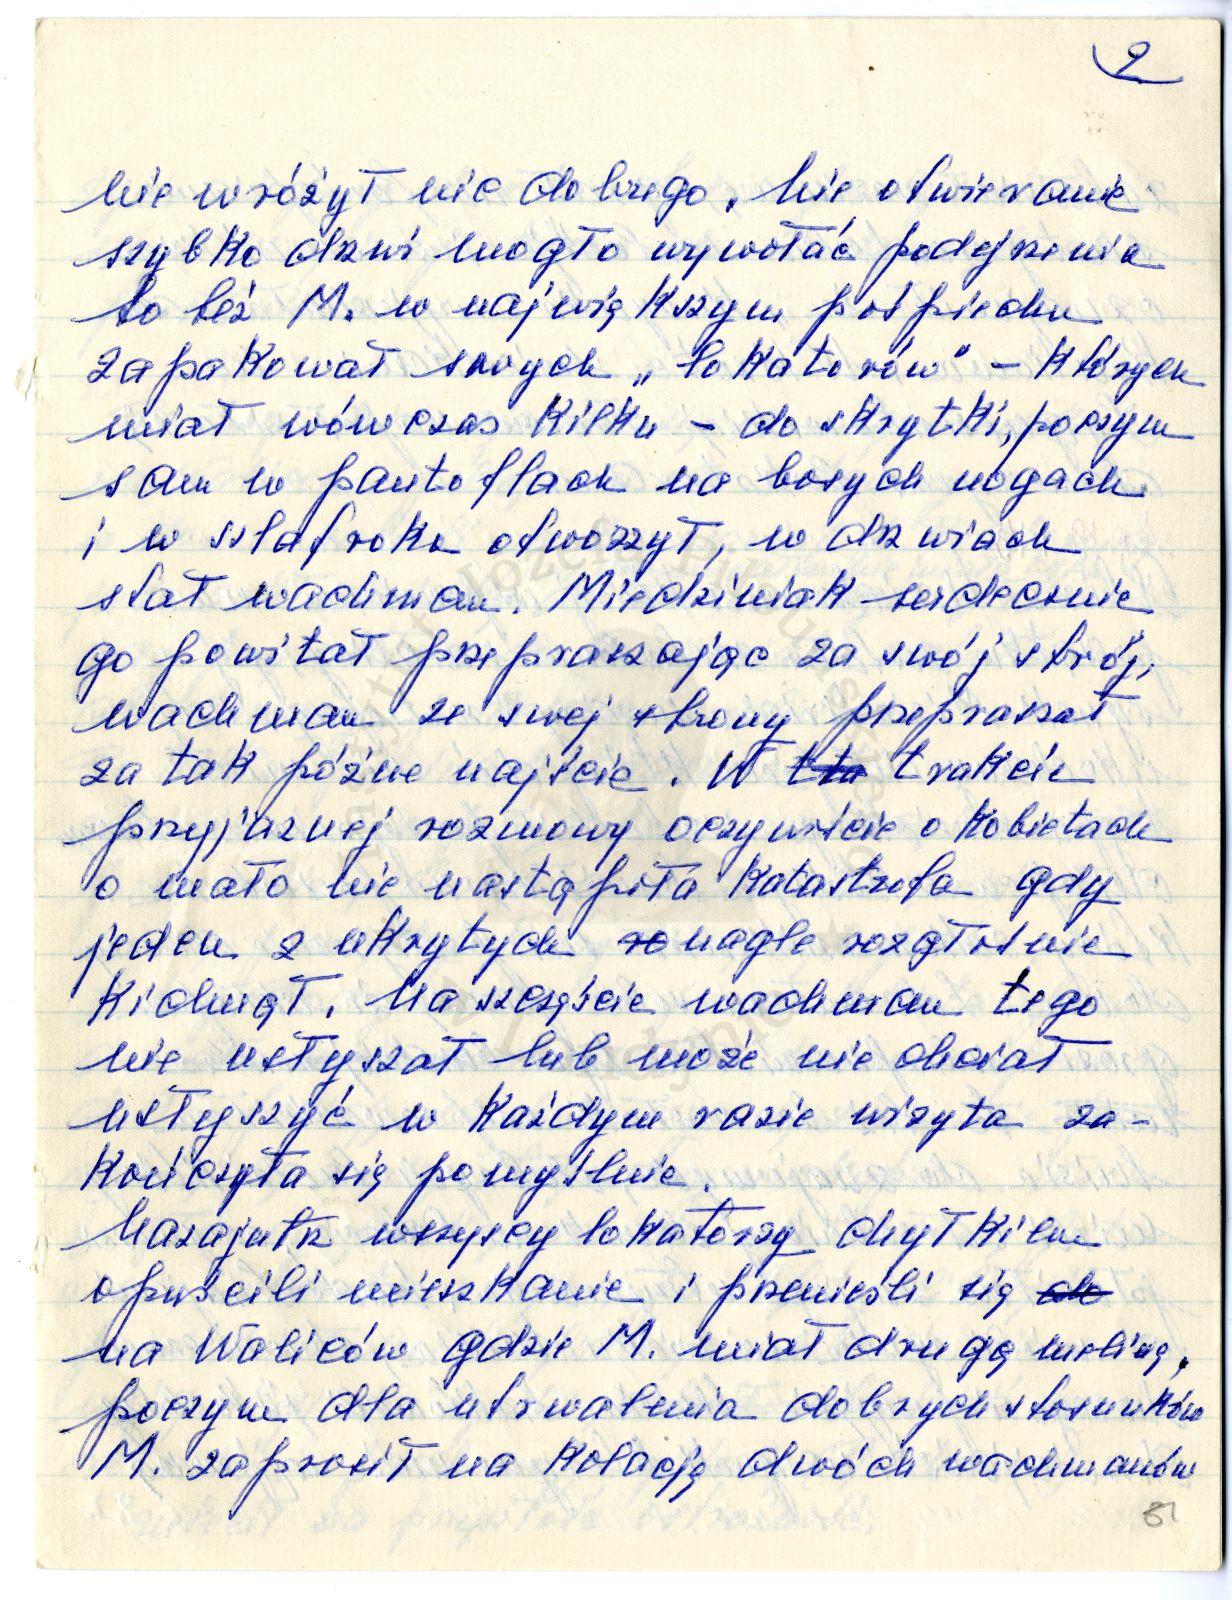 9
nie wróżył nic dobrego. Nie otwieranie
szybko drzwi mogło wywołać podejrzenia
to też M. w największym pośpiechu
zapakował swych „lokatorów" – których
miał wówczas kilku – do skrytki, poczym
sam w pantoflach na bosych nogach
i w szlafroku otworzył, w drzwiach
stał wachman. Miedziniak serdecznie
go powitał przepraszając za swój strój,
wachman ze swej strony przepraszał
za tak późne najście. W tta trakcie
przyjaznej rozmowy oczywiście o kobietach
o mało nie nastąpiła katastrofa gdy
jeden z ukrytych ro nagle rozgłośnie
kichnął. Na szczęście wachman tego
nie usłyszał lub może nie chciał
usłyszyć w każdym razie wizyta za-
kończyła się pomyślnie.
Nazajutrz wszyscy lokatorzy chyłkiem
opuścili mieszkanie i przenieśli się do
na Waliców gdzie M. miał drugą melinę,
poczym dla utrwalenia dobrych stosunków
M. zaprosił na kolację dwóch wachmanów
81
Instytut Józefa Piłsudskiego
w Londynie